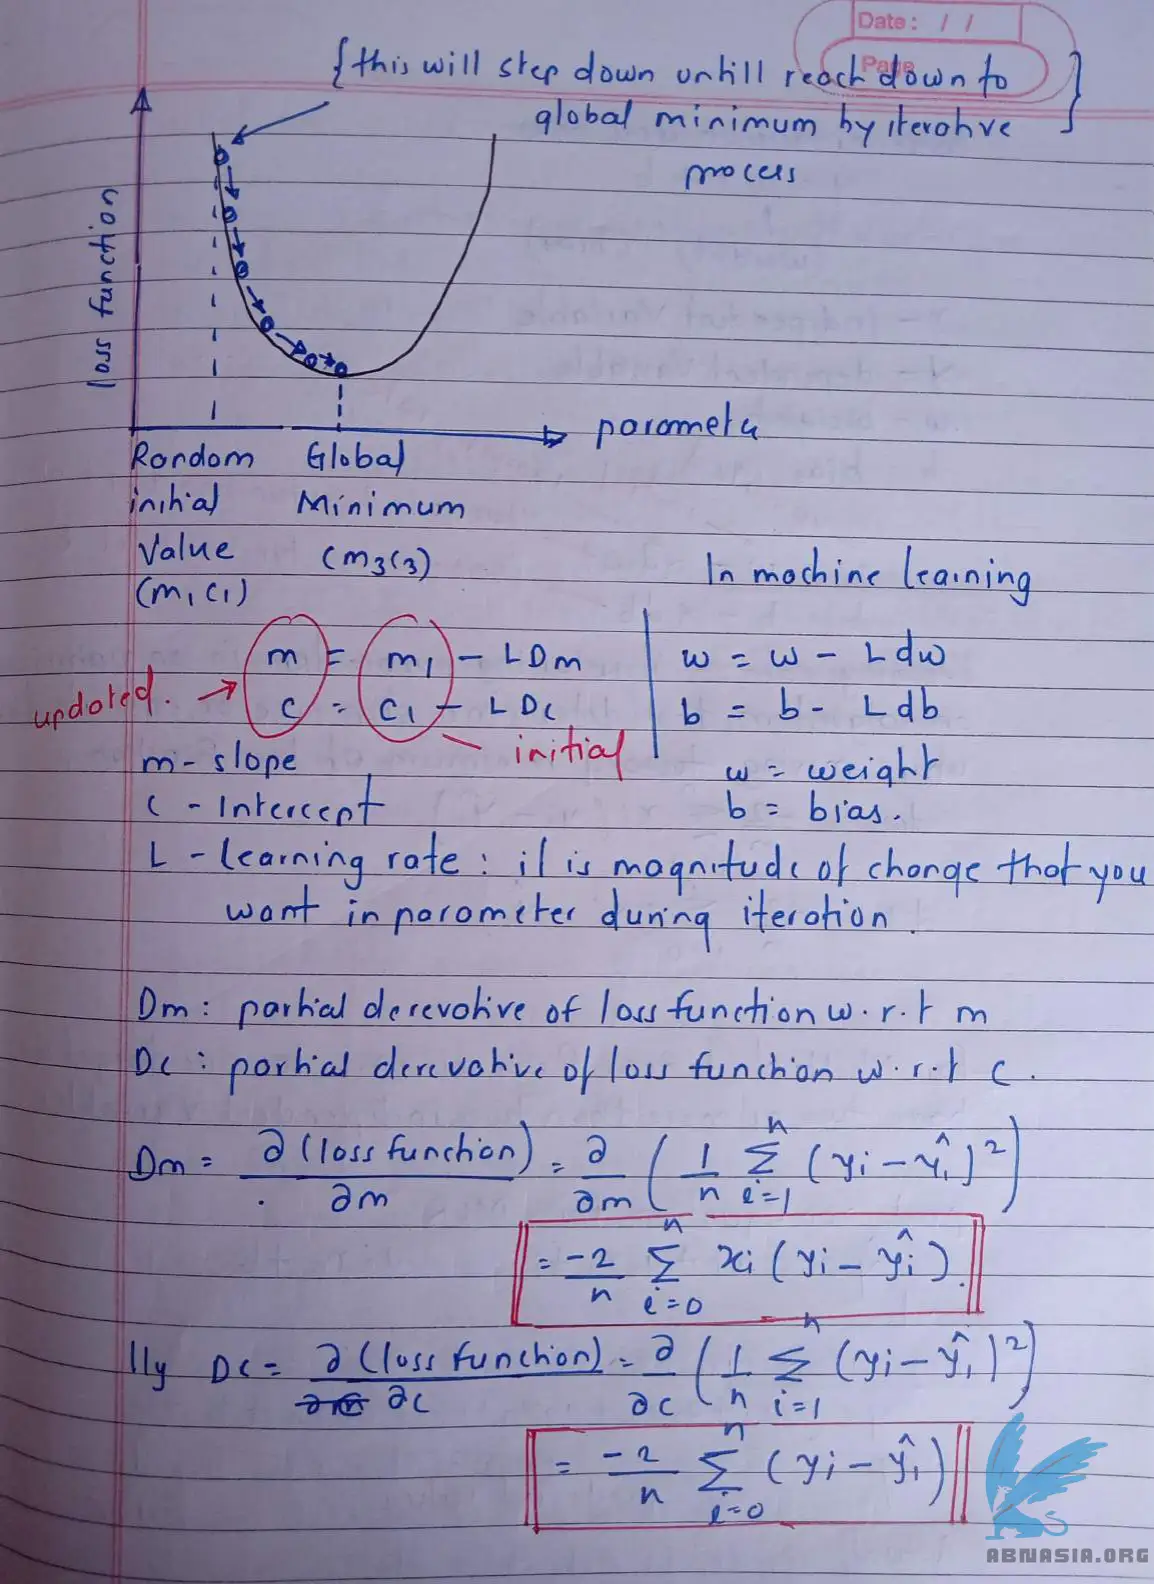 Date: / /
Page
{this will step down untill reach down to
global minimum by iterative
process}
loss function
parameter
Random Global
initial Minimum
Value (m3c3)
(m1c1)
In machine learning
m = m1 - LDm
c = c1 - LDc
updated.
initial
w = w - Ldw
b = b - Ldb
m - slope
w = weight
c - Intercept
b = bias.
L - learning rate : it is magnitude of change that you
want in parameter during iteration.
Dm : partial derevative of loss function w.r.t m
Dc : partial derevative of loss function w.r.t c.
Dm = ∂(loss function)/∂m = ∂/∂m (1/n Σ i=1 n (yi - ŷi)²)
= -2/n Σ i=0 n xi (yi - ŷi).
lly Dc = ∂(loss function)/∂c = ∂/∂c (1/n Σ i=1 n (yi - ŷi)²)
= -2/n Σ i=0 n (yi - ŷi)
ABNASIA.ORG